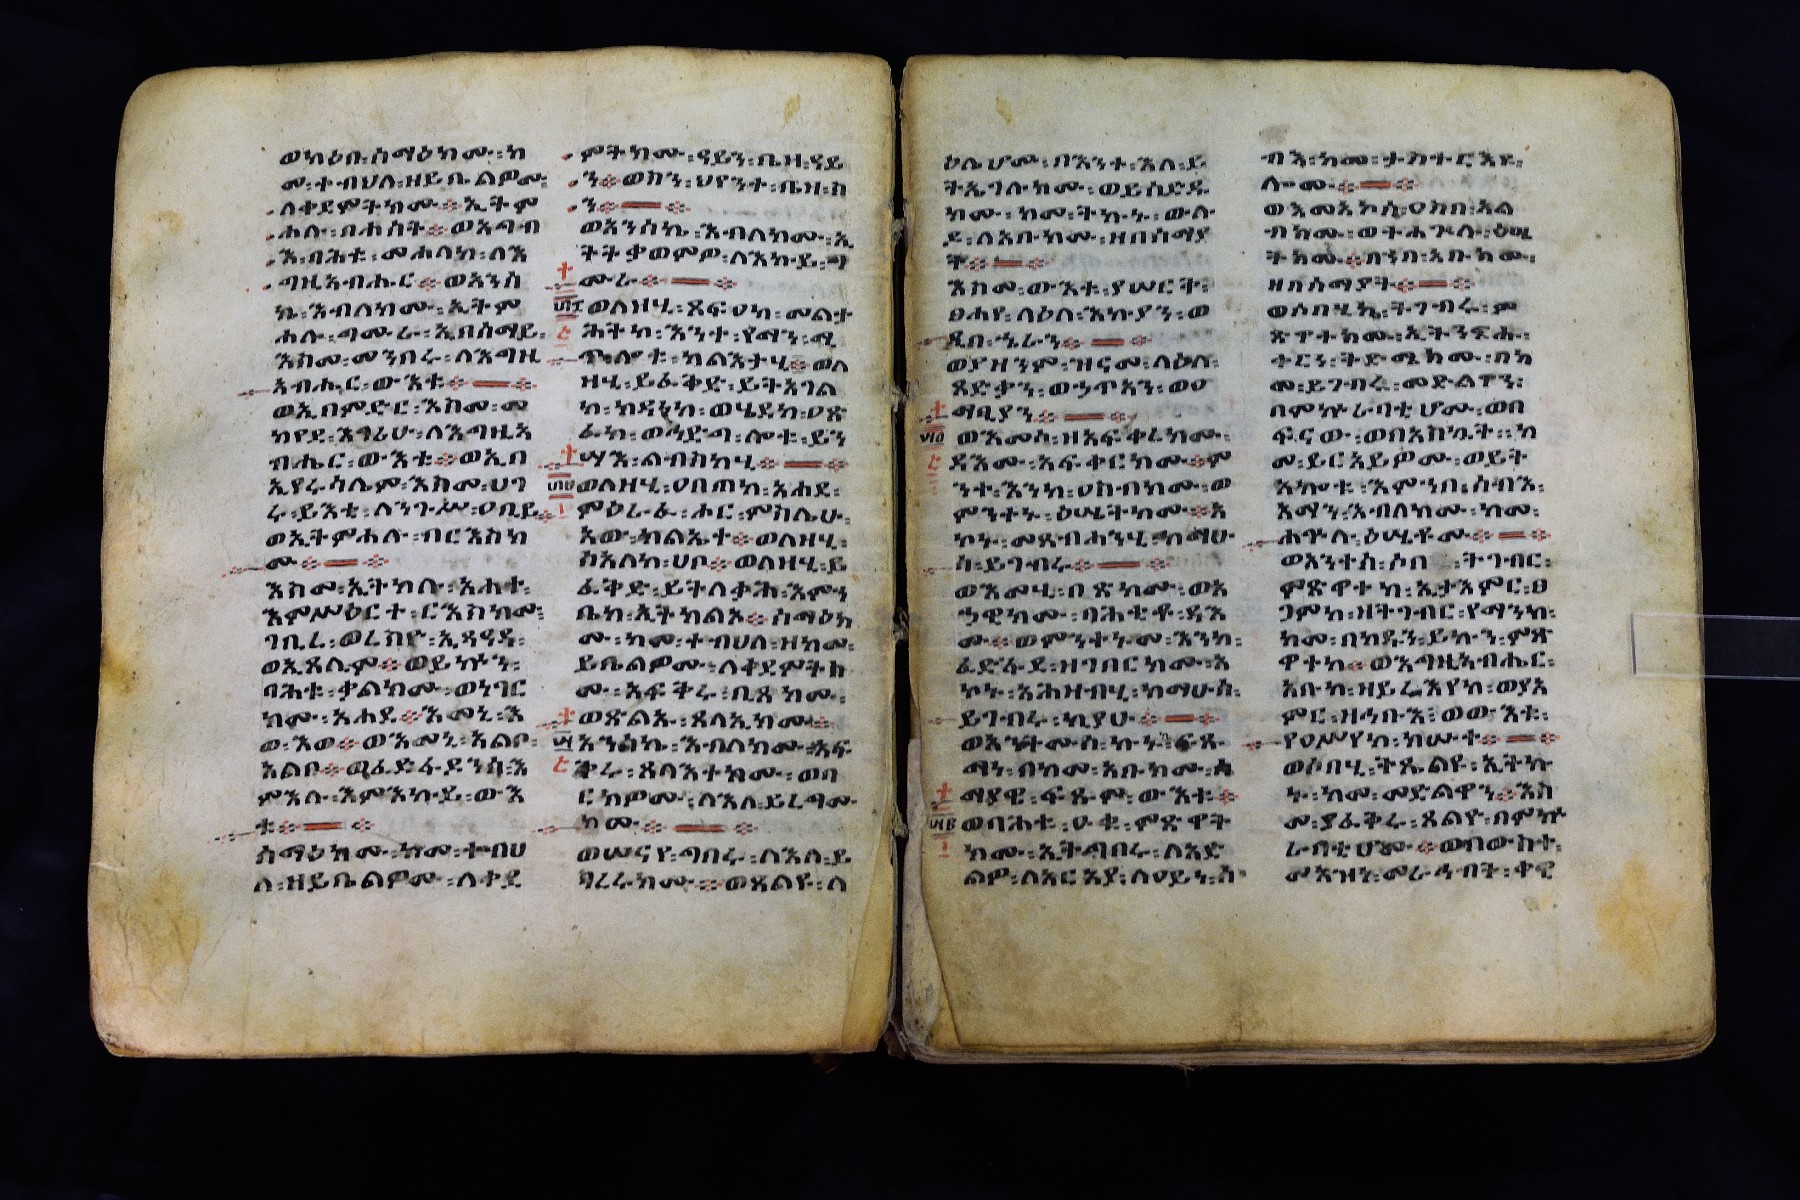 ወካዕበ፡ሰማዕክሙ፡ከ
መ፡ተብህለ፡ዘይቤልዎሙ፡
ለቀደምትክሙ፨ኢትም
ሐሉ፡በሐሰት፨ወአግብ
እ፡ባሕቱ፡መሐላከ፡ለእ
ግዚአብሔር፨ወአንሰ
ኬ፡እብለክሙ፡ኢትም
ሐሉ፡ግሙራ፡ኢበሰማይ፡
እስመ፡መንበሩ፡ለእግዚ
አብሔር፡ውእቱ፨
ወኢበምድር፡እስመ፡መ
ከየደ፡እግሪሁ፡ለእግዚአ
ብሔር፡ውእቱ፨ወኢበ
ኢየሩሳሌም፡እስመ፡ሀገ
ሩ፡ይእቲ፡ለንጉሥ፡ዐቢይ፨
ወኢትምሐሉ፡ብርእስከ
ሙ፨
እስመ፡ኢትክሉ፡አሐተ፡
እምሥዕርተ፡ርእስክሙ፡
ገቢረ፡ወረስዮ፡ኢጸዓዳ፡
ወኢጸሊም፨ወይኩን፡
ባሕቱ፡ቃልክሙ፡ወነገር
ክሙ፡አሐደ፨እመኒ፡እ
ወ፡እወ፨ወእመኒ፡አልቦ፡
አልቦ፨ወፈድፋደንሰ፡እ
ምእሉ፡እምእኩይ፡ውእ
ቱ፨
ሰማዕክሙ፡ከመ፡ተብህ
ለ፡ዘይቤልዎሙ፡ለቀደ
ምትክሙ፡ዓይን፡ቤዛ፡ዓይ
ን፨ወስን፡ህየንተ፡ቤዛ፡ስ
ን፨
ወአንሰኬ፡እብለክሙ፡ኢ
ትትቃወምዎ፡ለእኩይ፡ግ
ሙራ፨
ወለዘሂ፡ጸፍዐከ፡መልታ
ሕትከ፡እንተ፡የማን፡ሚ
ጥ፡ሎቱ፡ካልእታሂ፨ወለ
ዘሂ፡ይፈቅድ፡ይትአገል
ከ፡ክዳነከ፡ወሄደከ፡ዐጽ
ፈከ፡ወኅድግ፡ሎቱ፡ይን
ሣእ፡ልብስከሂ፨
ወለዘሂ፡ዐበጠከ፡አሐደ፡
ምዕራፈ፡ሑር፡ምስሌሁ፡
እወ፡ካልኤተ፨ወለዘሂ፡
ስእለከ፡ሀቦ፨ወለዘሂ፡ይ
ፈቅድ፡ይትለቃሕ፡እምኀ
ቤከ፡ኢትክልእ፨ሰማዕክ
ሙ፡ከመ፡ተብህለ፡ዘከመ፡
ይቤልዎሙ፡ለቀደምትክ
ሙ፡አፍቅሩ፡ቢጸክሙ፡
ወጽልኡ፡ጸላኢክሙ፨
አንሰኬ፡እብለክሙ፡አፍ
ቅሩ፡ጸላእተክሙ፡ወባ
ርክዎሙ፡ለእለ፡ይረግሙ
ክሙ፨
ወሠናየ፡ግበሩ፡ለእለ፡ይ
ጻረሩክሙ፨ወጸልዩ፡ላ
ዕሌሆሙ፡በእንተ፡እለ፡ይ
ትኤገሉክሙ፡ወይሰድዱ
ክሙ፡ከመ፡ትኩኑ፡ውሉ
ደ፡ለአቡክሙ፡ዘበሰማያ
ት፨
እስመ፡ውእቱ፡ያሠርቅ፡
ፀሐየ፡ላዕለ፡እኩያን፡ወ
ዲበ፡ኄራን፨
ወያዘንም፡ዝናመ፡ላዕለ፡
ጻድቃን፡ወኃጥአን፡ወዐ
ማፂያን፨
ወእመሰ፡ዘአፍቀረክሙ፡
ዳእሙ፡አፍቀርክሙ፨ም
ንተ፡እንከ፡ዐስብክሙ፡ወ
ምንተኑ፡ዕሤትክሙ፨አ
ኮኑ፡መጸብሓንሂ፡ከማሁ
ሰ፡ይገብሩ፨
ወእመሂ፡በጽክሙ፡ወአ
ኃዊክሙ፡ባሕቲቶ፡ዳእ
ሙ፨ወምንተኑመ፡እንከ፡
ፈድፋደ፡ዘገበርክሙ፡አ
ኮኑ፡አሕዛብሂ፡ከማሁሰ፡
ይገብሩ፡ኪያሁ፨
ወአንትሙሰ፡ኩኑ፡ፍጹ
ማነ፡በከመ፡አቡክሙ፡ሰ
ማያዊ፡ፍጹም፡ውእቱ፨
ወባሕቱ፡ዑቁ፡ምጽዋት
ክሙ፡ኢትግበሩ፡ለአድ
ልዎ፡ለአርእያ፡ለዐይነ፡ሰ
ብእ፡ከመ፡ታስተርእዩ፡
ሎሙ፨
ወእመአኮሰ፡ዐስበ፡አል
ብክሙ፡ወተሐጕለ፡ዕሤ
ትክሙ፨በኀበ፡አቡክሙ፡
ዘበሰማያት፨
ወሶበሂኬ፡ትገብሩ፡ም
ጽዋተክሙ፡ኢትንፍሑ፡
ቀርነ፡ቅድሜክሙ፡በከ
መ፡ይገብሩ፡መድልዋን፡
በምኵራባቲሆሙ፡ወበ
ፍናው፡ወበአስኳት፡ከ
መ፡ይርአይዎሙ፡ወይት
አኰቱ፡እምኀበ፡ሰብእ፡
አማን፡እብለክሙ፡ከመ፡
ሐጕሉ፡ዕሤቶሙ፨
ወአንተሰ፡ሶበ፡ትገብር፡
ምጽዋተከ፡ኢታእምር፡ፀ
ጋምከ፡ዘትገብር፡የማንከ፡
ከመ፡በክዱን፡ይኩን፡ምጽ
ዋተከ፨ወእግዚአብሔር፡
አቡከ፡ዘይሬእየከ፡ወያአ
ምር፡ዘኅቡእ፡ወውእቱ፡
የዐሥየከ፡ክሡተ፨
ወሶበሂ፡ትጼልዩ፡ኢትኩ
ኑ፡ከመ፡መድልዋን፨እስ
መ፡ያፈቅሩ፡ጸልዮ፡በምኵ
ራባቲሆሙ፨ወበውስተ፡
መእዝነ፡መራኅብት፡ቀዊ